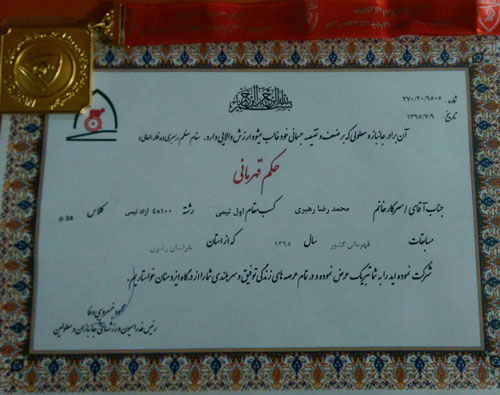 شماره: ۲۷۰/۲۰/۹۵۰۵
تاریخ ۱۳۹۵/۷/۹
آن برادر جانباز و معلولی که بر ضعف و نقیصه جسمانی خود غالب میشود ارزش والایی دارد. مقام معظم رهبری (مدظله العالی)
حکم قهرمانی
جناب آقای / سرکار خانم محمد رضا رهبری کسب مقام اول تیمی رشته ۱۰۰*٤ آزاد تیمی کلاس s-34
مسابقات قهرمانی کشور سال ۱۳۹۵ که از استان خراسان رضوی
شرکت نموده اید را به شما تبریک عرض نموده و در تمام عرصه های زندگی توفیق و سربلندی شما را از درگاه ایزد منان خواستاریم.
محمود خسروی وفا
رئیس فدراسیون ورزشهای جانبازان و معلولین